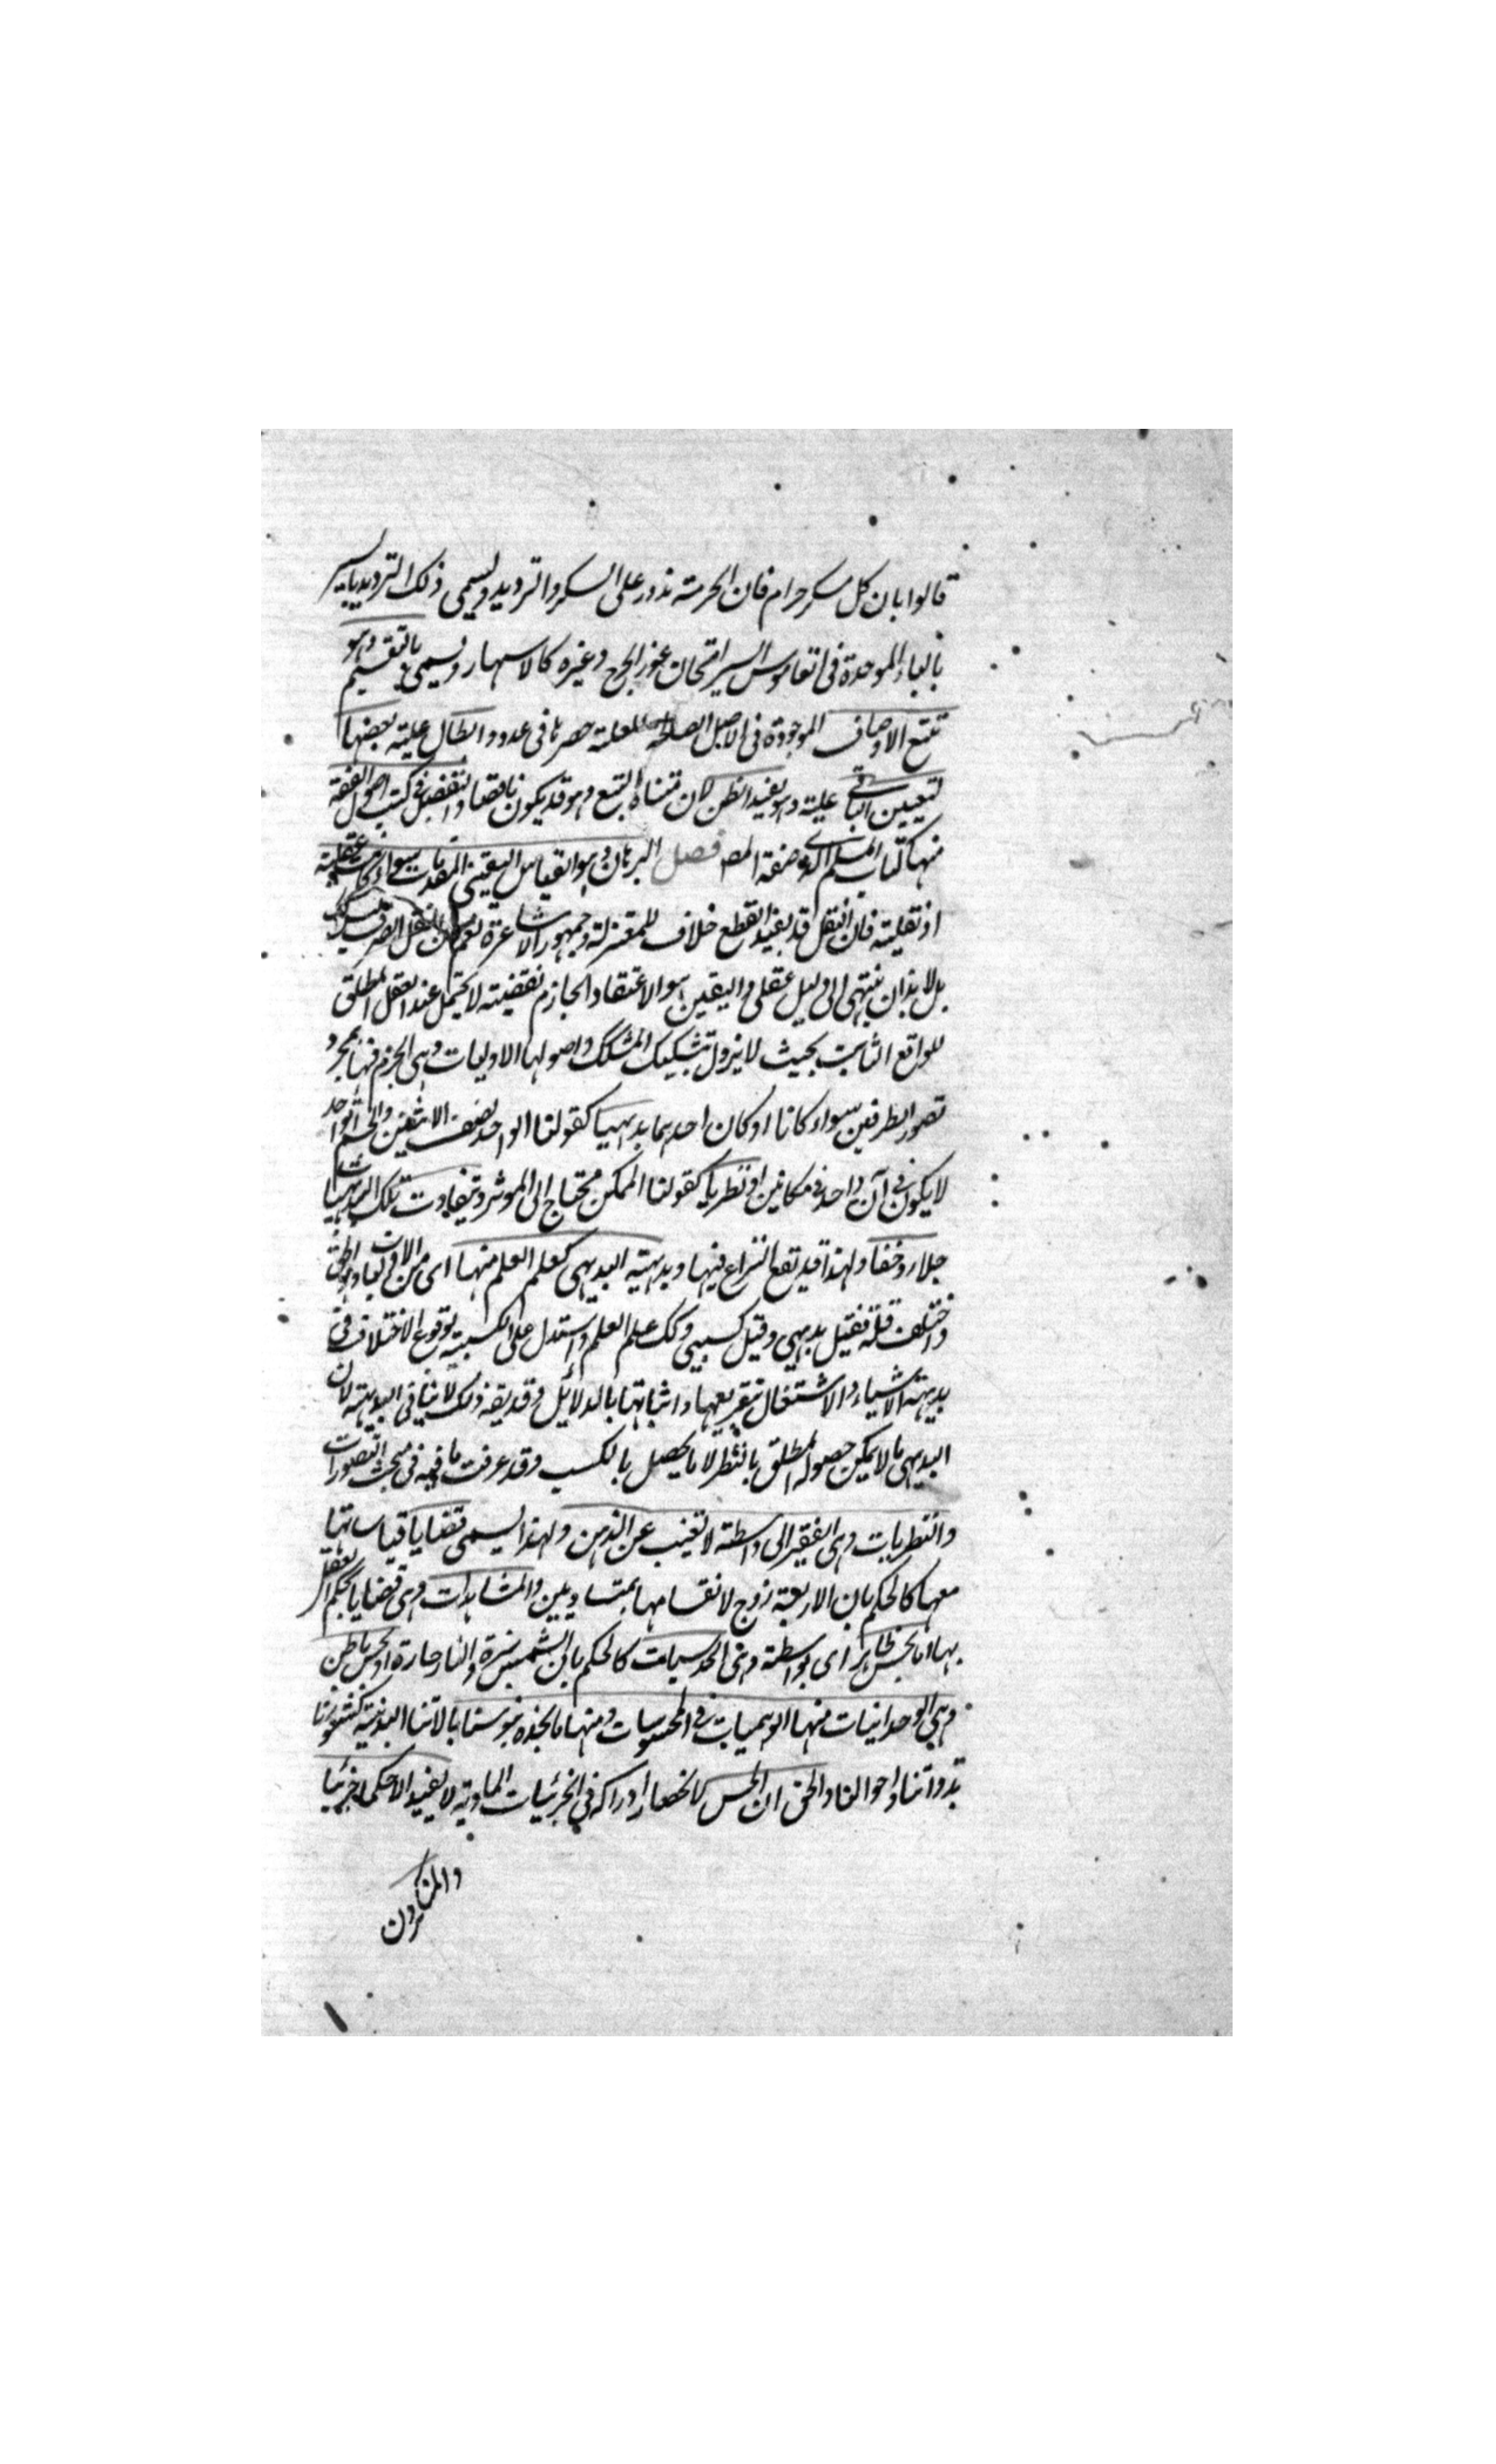 قالوا بان كل مسكر حرام فان الحرمة تدور على السكر والترديد ويسمى ذلك الترديد بالسبر
بالباء الموحدة فى القاموس السبر امتحان غور الجرح وغيره كالاسبهار ويسمى بالتقسيم وهو
تتبع الاوصاف الموجودة فى الاصل الصالحة للعلية حصرها فى عدد وابطال علية بعضها
لتعيين الباقى علية وهو يفيد الظن لان مبناه التتبع وهو قد يكون ناقصا والتفصيل فى كتب اصول الفقه
منها كتاب المسلم الذى صنفه المص فصل البرهان وهو القياس اليقينى المقدمات سواء كانت عقلية
او نقلية فان النقل قد يفيد القطع خلافا للمعتزلة وجمهور الاشاعرة نعم النقل الصرف ليس كذلك
بل لا بد ان ينتهى الى دليل عقلى واليقين هو الاعتقاد الجازم نقيضه لا يحتمل عند العقل المطلق
للواقع الثابت بحيث لا يزول بتشكيك المشكك واصولها الاوليات وهى الجزم فيها بمجرد
تصور الطرفين سواء كانا او كان احدهما بديهيا كقولنا الواحد نصف الاثنين والجسم الواحد
لا يكون فى آن واحد فى مكانين او نظريا كقولنا الممكن محتاج الى الموثر ويتفاوت تلك البديهيات
جلاء وخفاء ولهذا قد يقع النزاع فيها وبديهية البديهى كعلم العلم منها اى من الاوليات وهو الحق
واختلف فيه فقيل بديهى وقيل كسبى وكك علم العلم واستدل على الكسبية بوقوع الاختلاف فى
بديهة الاشياء والاشتغال بتفريعها واثباتها بالدلائل وقد يقه ذلك لا ينافى البديهية لان
البديهى ما لا يمكن حصوله المطلق بالنظر لا ما يحصل بالكسب وقد عرفت ما فيه فى مبحث التصورات
والفطريات وهى الفقير الى واسطة لا تغيب عن الذهن ولهذا يسمى قضايا قياساتها
معها كالحكم بان الاربعة زوج لانقسامها بمتساويين والمشاهدات وهى قضايا يحكم العقل
بها اما بحس ظاهر اى بواسطة وهى الحدسيات كالحكم بان الشمس نيرة والنار حارة او بحس باطن
وهى الوحدانيات منها الوهميات فى المحسوسات ومنها ما نجده بنفوسنا لا بآلاتنا البدنية كشعورنا
بذواتنا واحوالنا والحق ان الحس لانحصار ادراكه فى الجزئيات المادية لا يفيد الا حكما جزئيا
والمنكرون